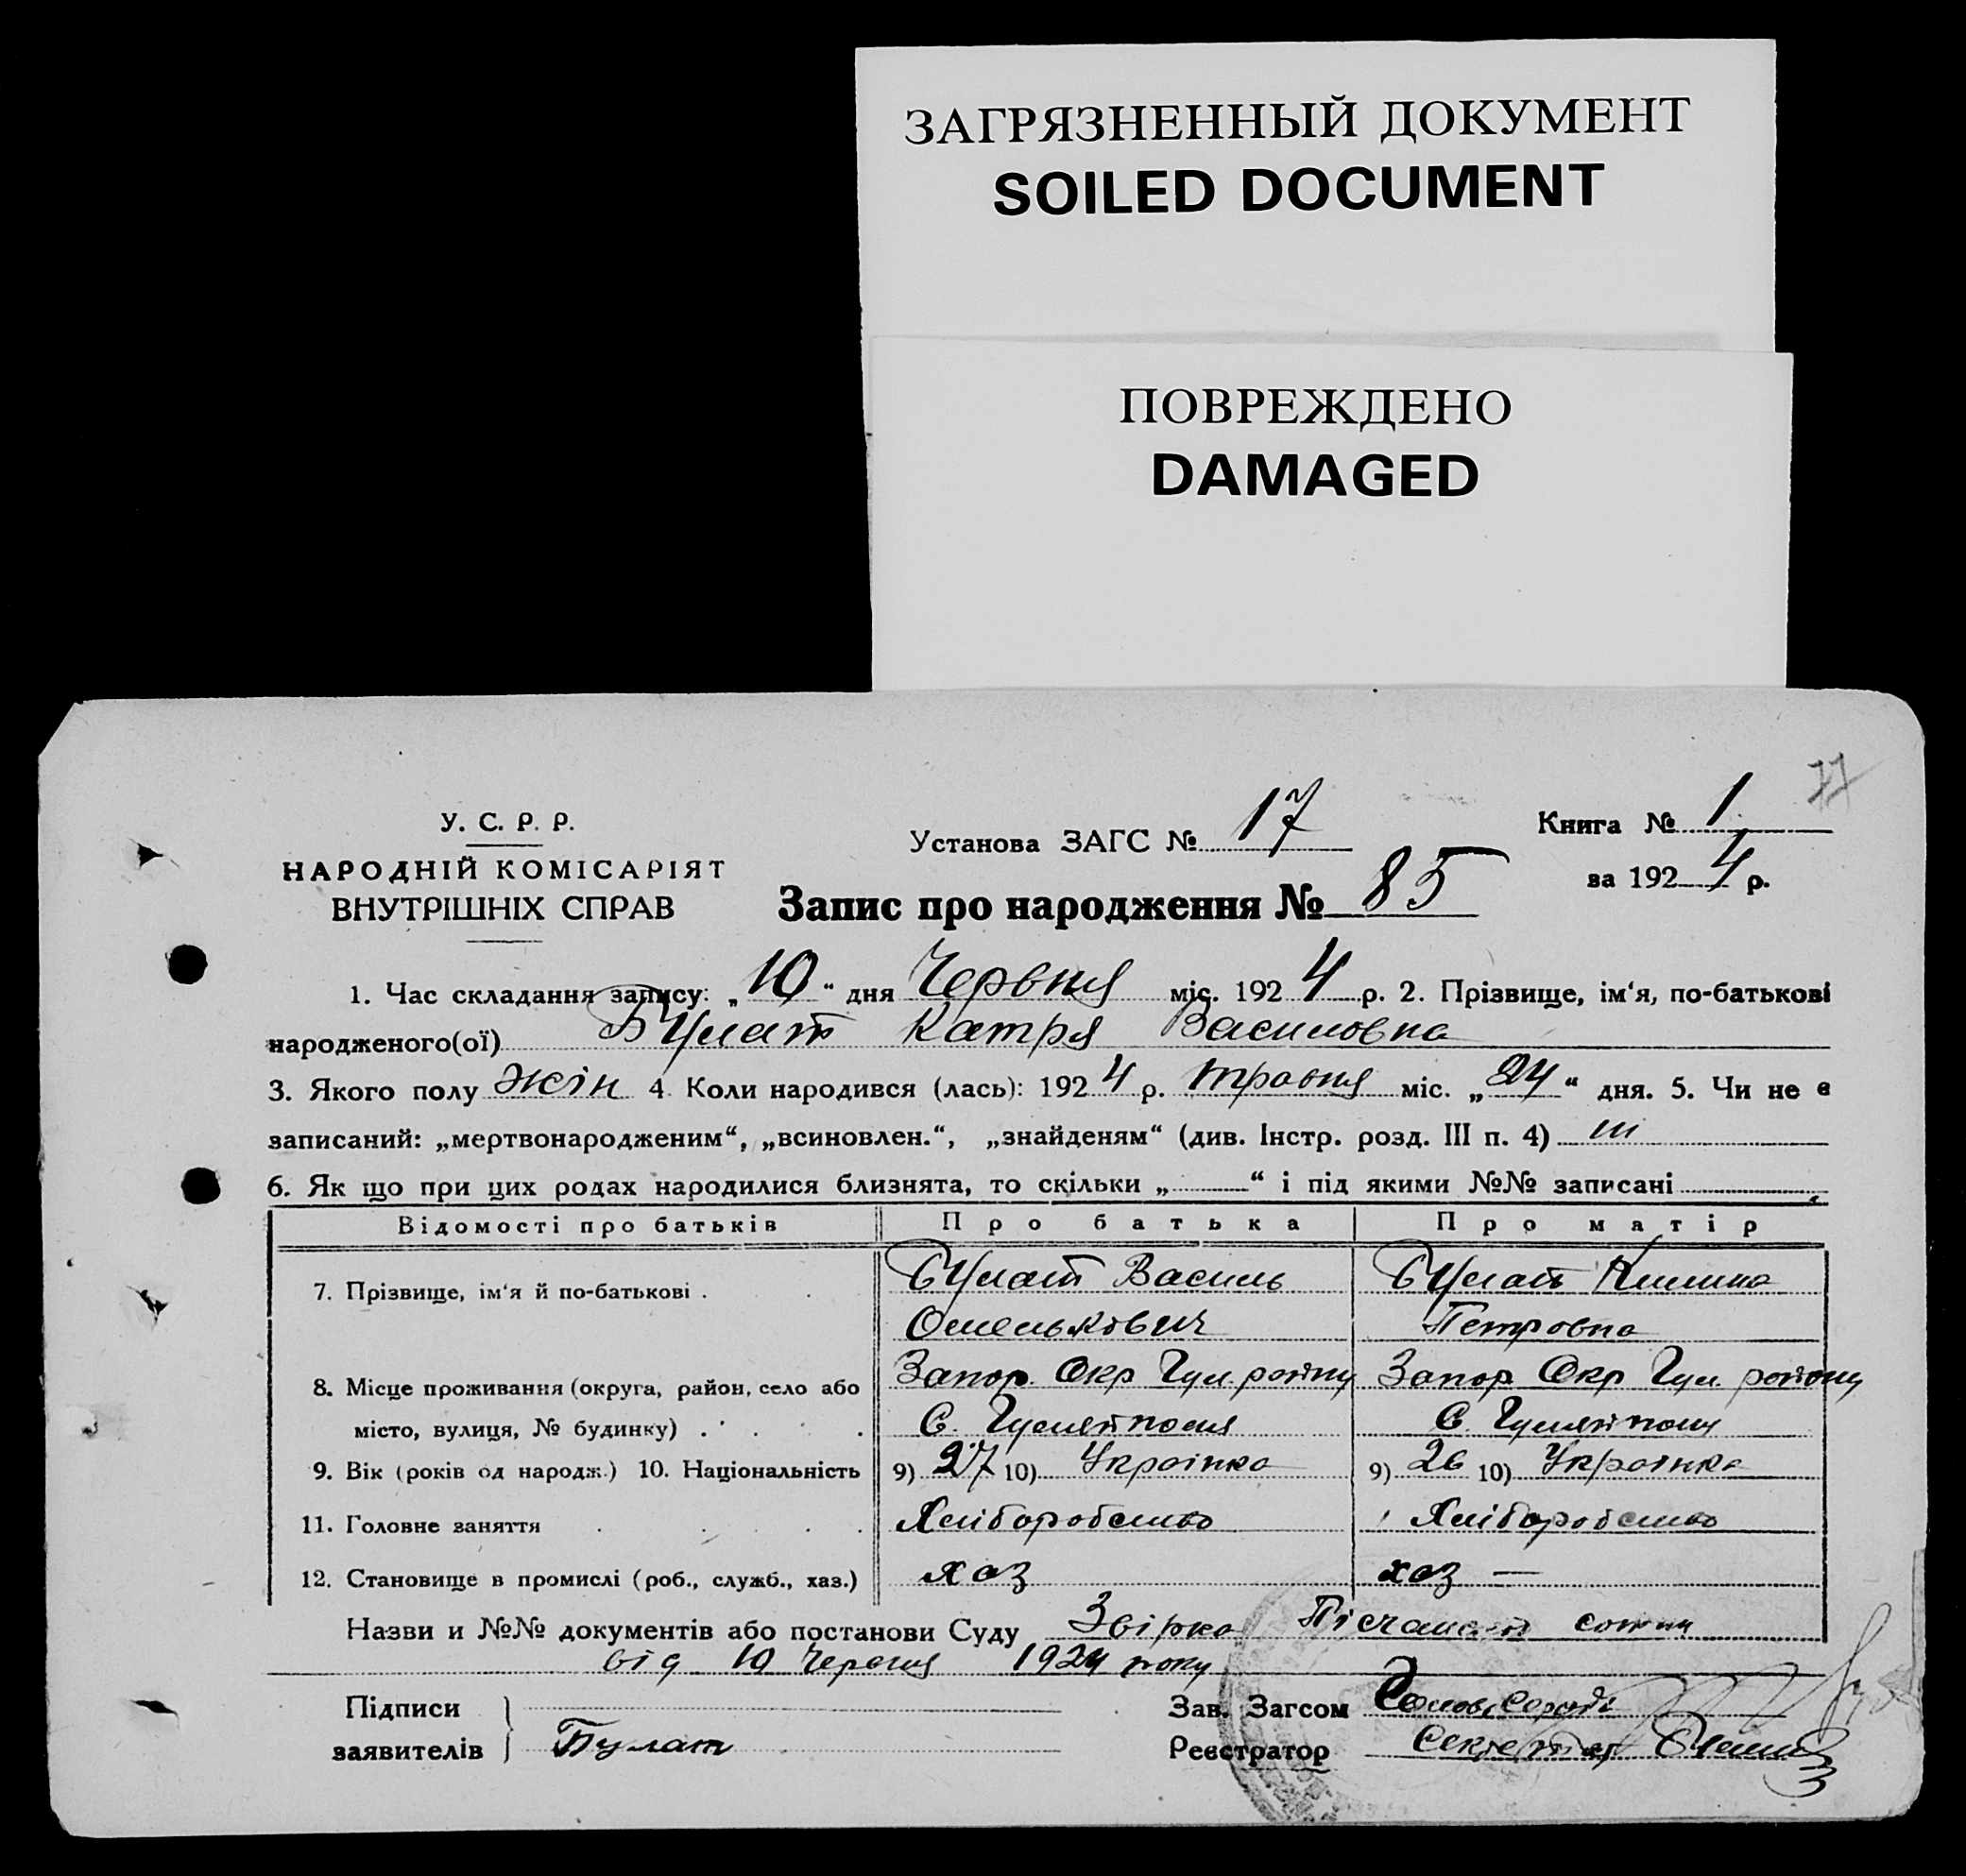 ЗАГРЯЗНЕННЫЙ ДОКУМЕНТ
SOILED DOCUMENT
ПОВРЕЖДЕНО
DAMAGED
77
У. С. Р. Р.
НАРОДНІЙ КОМІСАРІЯТ
ВНУТРІШНІХ СПРАВ
Установа ЗАГС № 17
Книга № 1
за 1924 р.
Запис про народження № 85
1. Час складання запису: „10“ дня Червня міс. 1924 р. 2. Прізвище, ім‘я, по-батькові
народженого(ої) Булат Катря Василовна
3. Якого полу жін 4. Коли народився (лась): 1924 р. травня міс. „24“ дня. 5. Чи не є
записаний: „мертвонародженим“, „всиновлен.“, „знайденям“ (див. Інстр. розд. III п. 4) ні
6. Як що при цих родах народилися близнята, то скільки „ “ і під якими №№ записані
Відомості про батьків Про батька Про матір
7. Прізвище, ім‘я й по-батькові . Булат Василь Булат Килина
Омелькович Петровна
8. Місце проживання (округа, район, село або Запор. Окр Гул. району Запор Окр Гул. району
місто, вулиця, № будинку) С. Гуляйполя С. Гуляйполу
9. Вік (років од народж.) 10. Національність 9) 27 10) Українка 9) 26 10) Українка
11. Головне заняття Хліборобство Хліборобство
12. Становище в промислі (роб., служб., хаз.) хаз хаз —
Назви и №№ документів або постанови Суду Звірка сотни
від 10 Червня 1924 року
Підписи Зав. Загсом
заявителів Булат Реєстратор Секретар